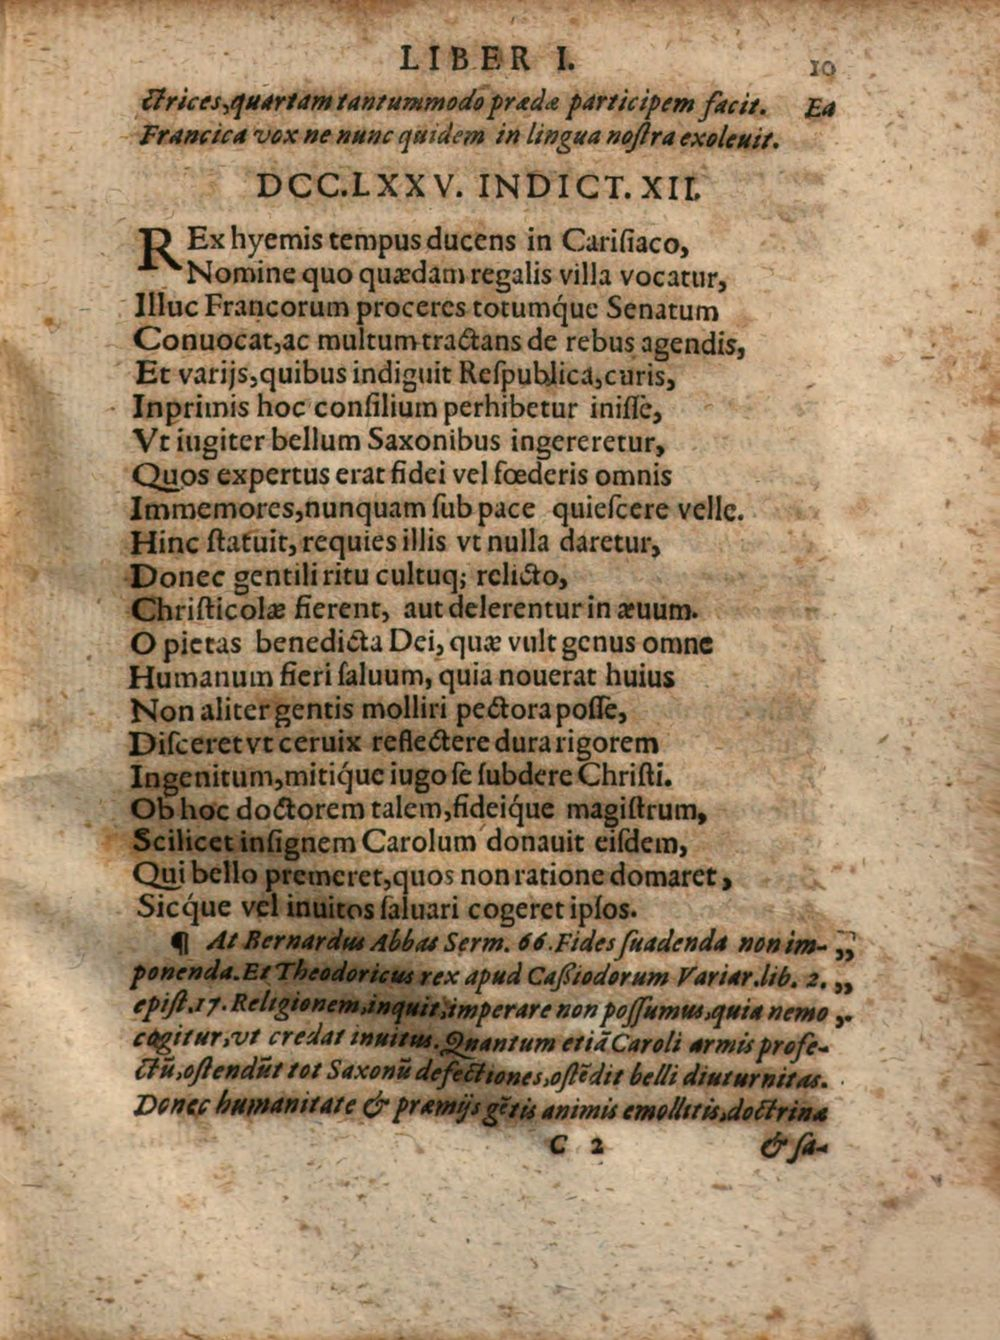 LIBER I. 10
ctrices, quartam tantummodo prædæ participem facit. Ea
Francica vox ne nunc quidem in lingua noſtra exoleuit.
DCC.LXXV. INDICT. XII.
REx hyemis tempus ducens in Cariſiaco,
Nomine quo quædam regalis villa vocatur,
Illuc Francorum proceres totumq́ue Senatum
Conuocat, ac multum tractans de rebus agendis,
Et varijs, quibus indiguit Reſpublica, curis,
Inprimis hoc conſilium perhibetur iniſſe,
Vt iugiter bellum Saxonibus ingereretur,
Quos expertus erat fidei vel fœderis omnis
Immemores, nunquam ſub pace quieſcere velle.
Hinc ſtatuit, requies illis vt nulla daretur,
Donec gentili ritu cultuq; relicto,
Chriſticolæ fierent, aut delerentur in æuum.
O pietas benedicta Dei, quæ vult genus omne
Humanum fieri ſaluum, quia nouerat huius
Non aliter gentis molliri pectora poſſe,
Diſceret vt ceruix reflectere dura rigorem
Ingenitum, mitiq́ue iugo ſe ſubdere Chriſti.
Ob hoc doctorem talem, fideiq́ue magiſtrum,
Scilicet inſignem Carolum donauit eiſdem,
Qui bello premeret, quos non ratione domaret,
Sicq́ue vel inuitos ſaluari cogeret ipſos.
¶ At Bernardus Abbas Serm. 66. Fides ſuadenda non im- „
ponenda. Et Theodoricus rex apud Caſſiodorum Variar. lib. 2. „
epiſt. 17. Religionem, inquit, imperare non poſſumus, quia nemo „
cogitur, vt credat inuitus. Quantum etiā Caroli armis profe-
ctū, oſtendūt tot Saxonū defectiones, oſtēdit belli diuturnitas.
Donec humanitate & præmijs gētis animis emollitis, doctrina
C 2 & ſa-